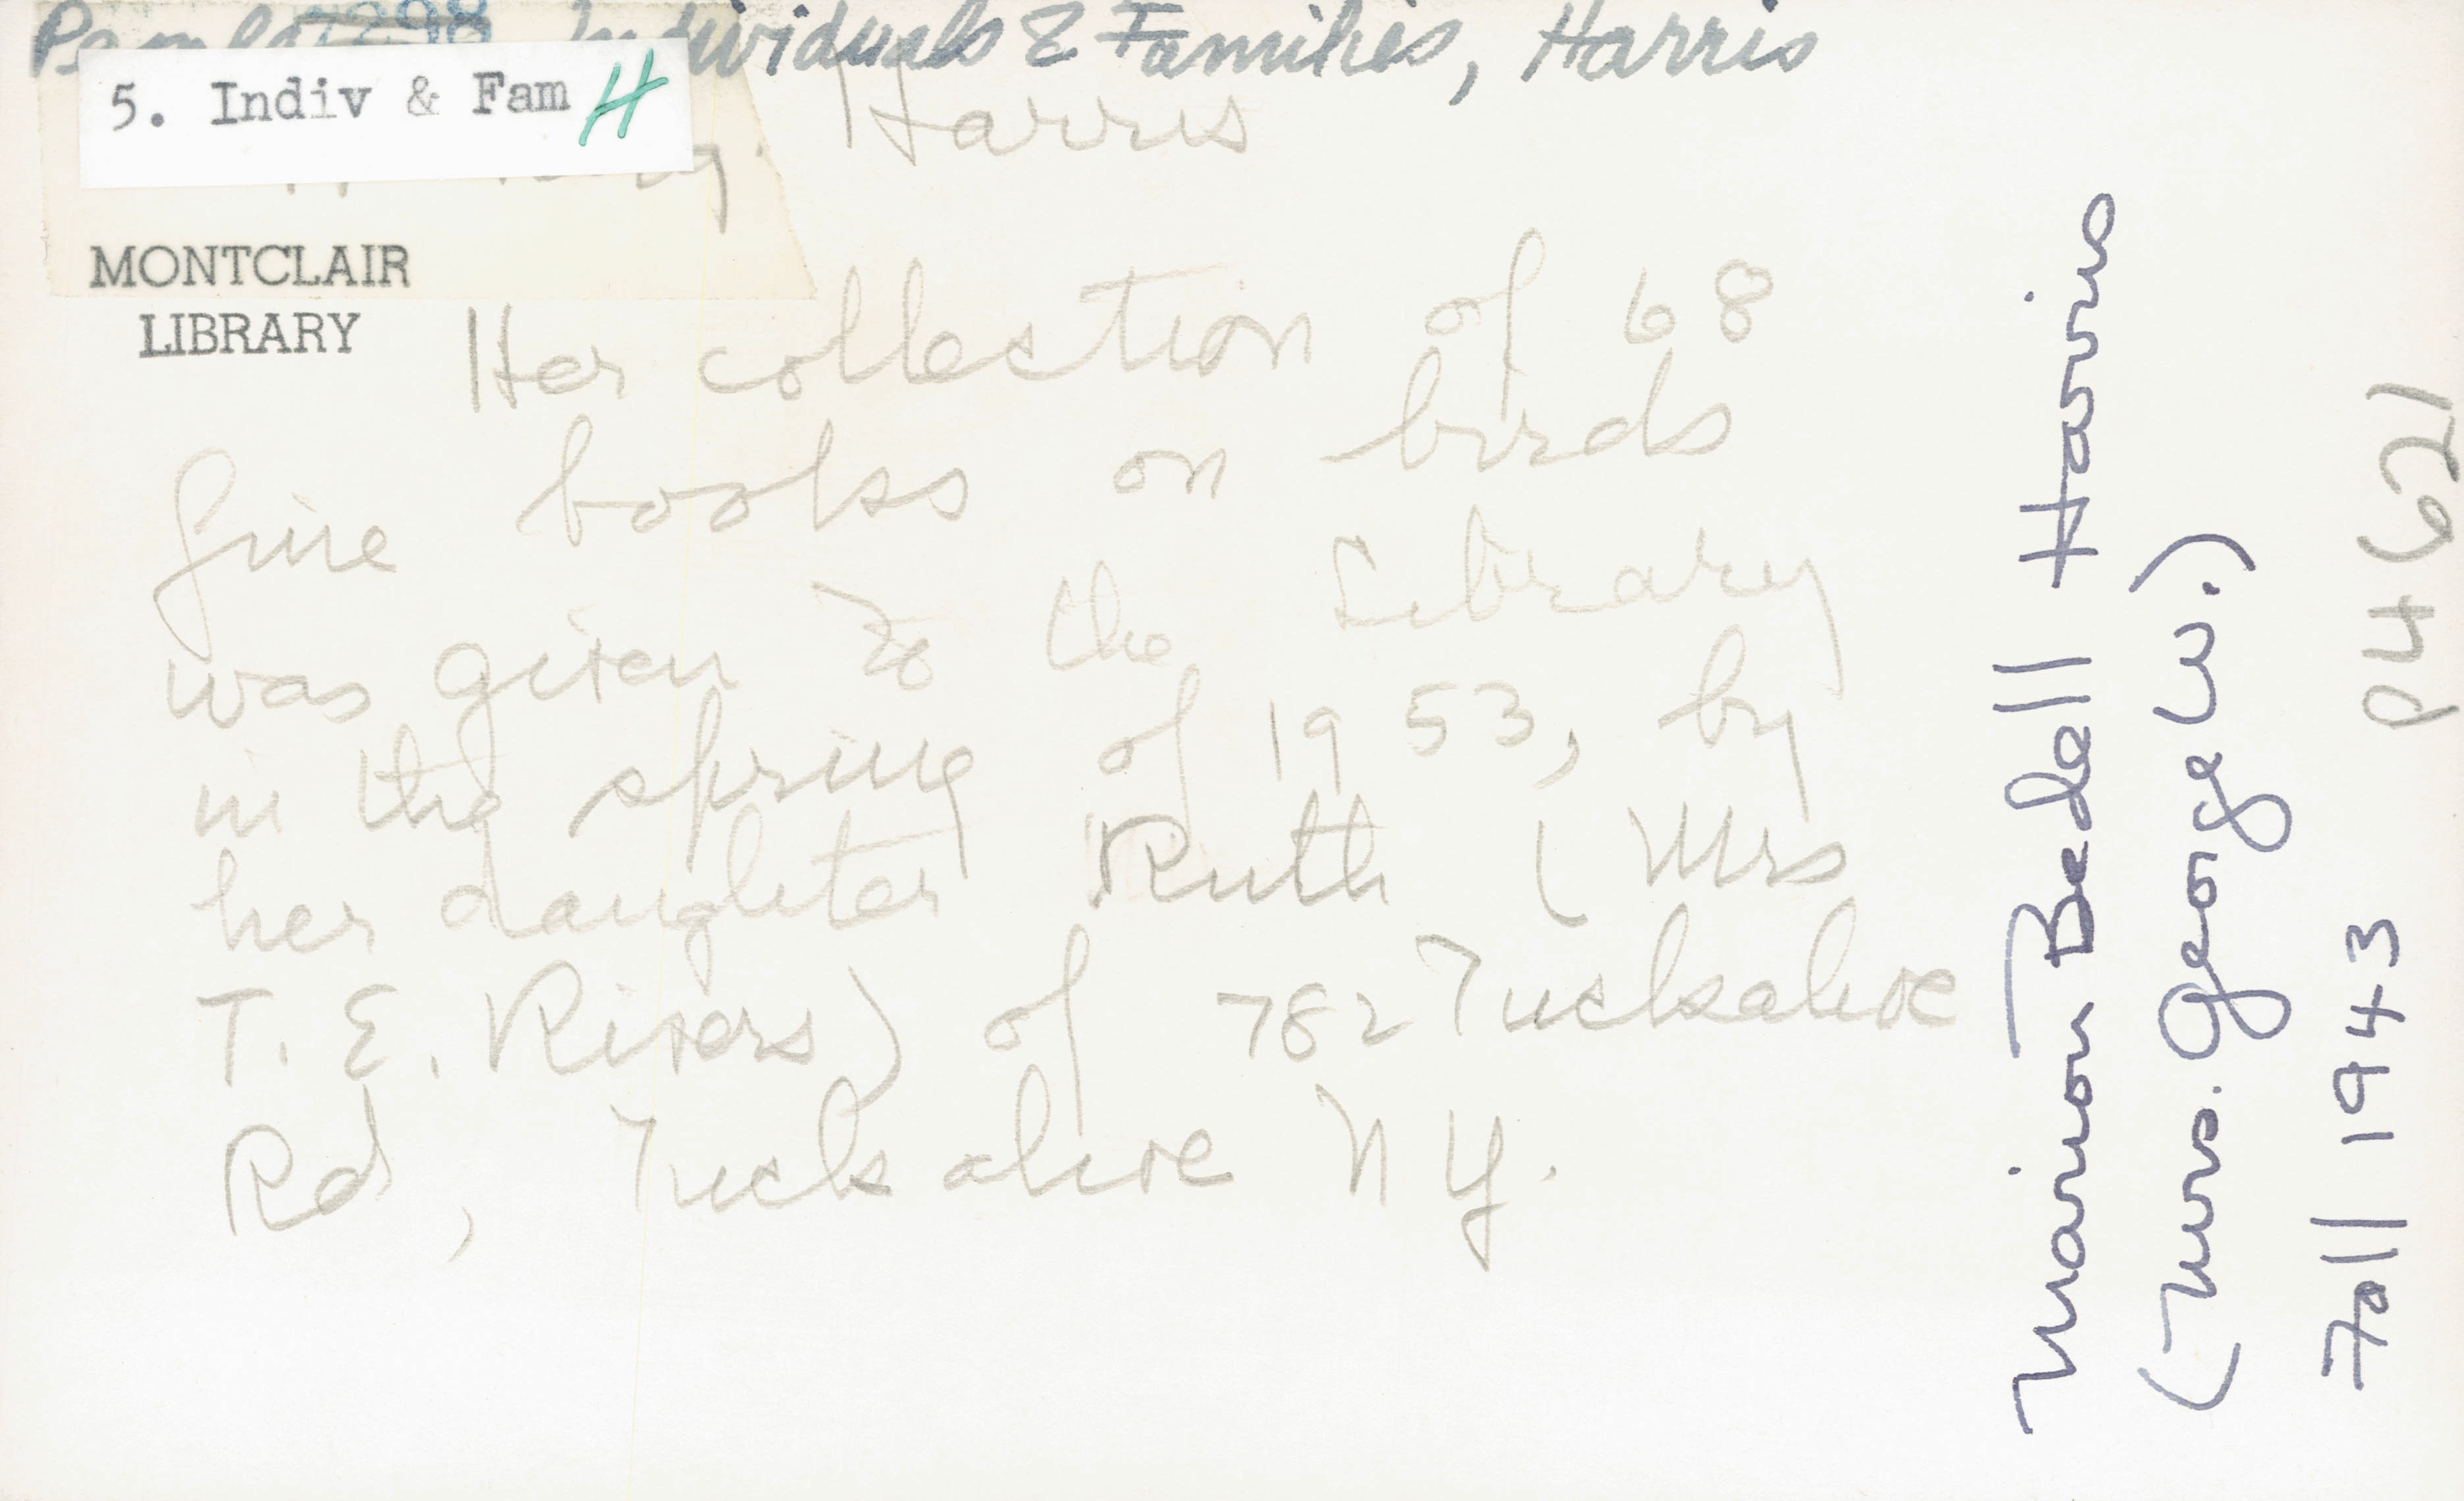 Individuals & Families, Harris
5. Indiv & Fam H
Harris
MONTCLAIR
LIBRARY
Her collection of 68
fine books on birds
was given to the Library
in the spring of 1953, by
her daughter Ruth (Mrs
T. E. Rivers) of 782 Tuckahoe
Rd, Tuckahoe N Y.
Marion Bedell Harris
(Mrs. George W.)
Fall 1943
P4621